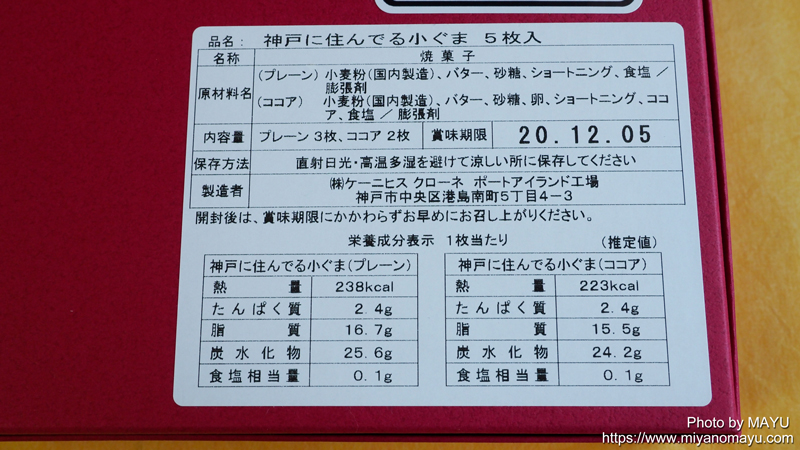 品名： 神戸に住んでる小ぐま ５枚入
名称 焼菓子
原材料名 （プレーン）小麦粉（国内製造）、バター、砂糖、ショートニング、食塩／
膨張剤
（ココア） 小麦粉（国内製造）、バター、砂糖、卵、ショートニング、ココ
ア、食塩／膨張剤
内容量 プレーン３枚、ココア２枚 賞味期限 20.12.05
保存方法 直射日光・高温多湿を避けて涼しい所に保存してください
製造者 ㈱ケーニヒス クローネ ポートアイランド工場
神戸市中央区港島南町５丁目４−３
開封後は、賞味期限にかかわらずお早めにお召し上がりください。
栄養成分表示 １枚当たり （推定値）
神戸に住んでる小ぐま（プレーン）
熱量 238kcal
たんぱく質 2.4g
脂質 16.7g
炭水化物 25.6g
食塩相当量 0.1g
神戸に住んでる小ぐま（ココア）
熱量 223kcal
たんぱく質 2.4g
脂質 15.5g
炭水化物 24.2g
食塩相当量 0.1g
Photo by MAYU
https://www.miyanomayu.com/